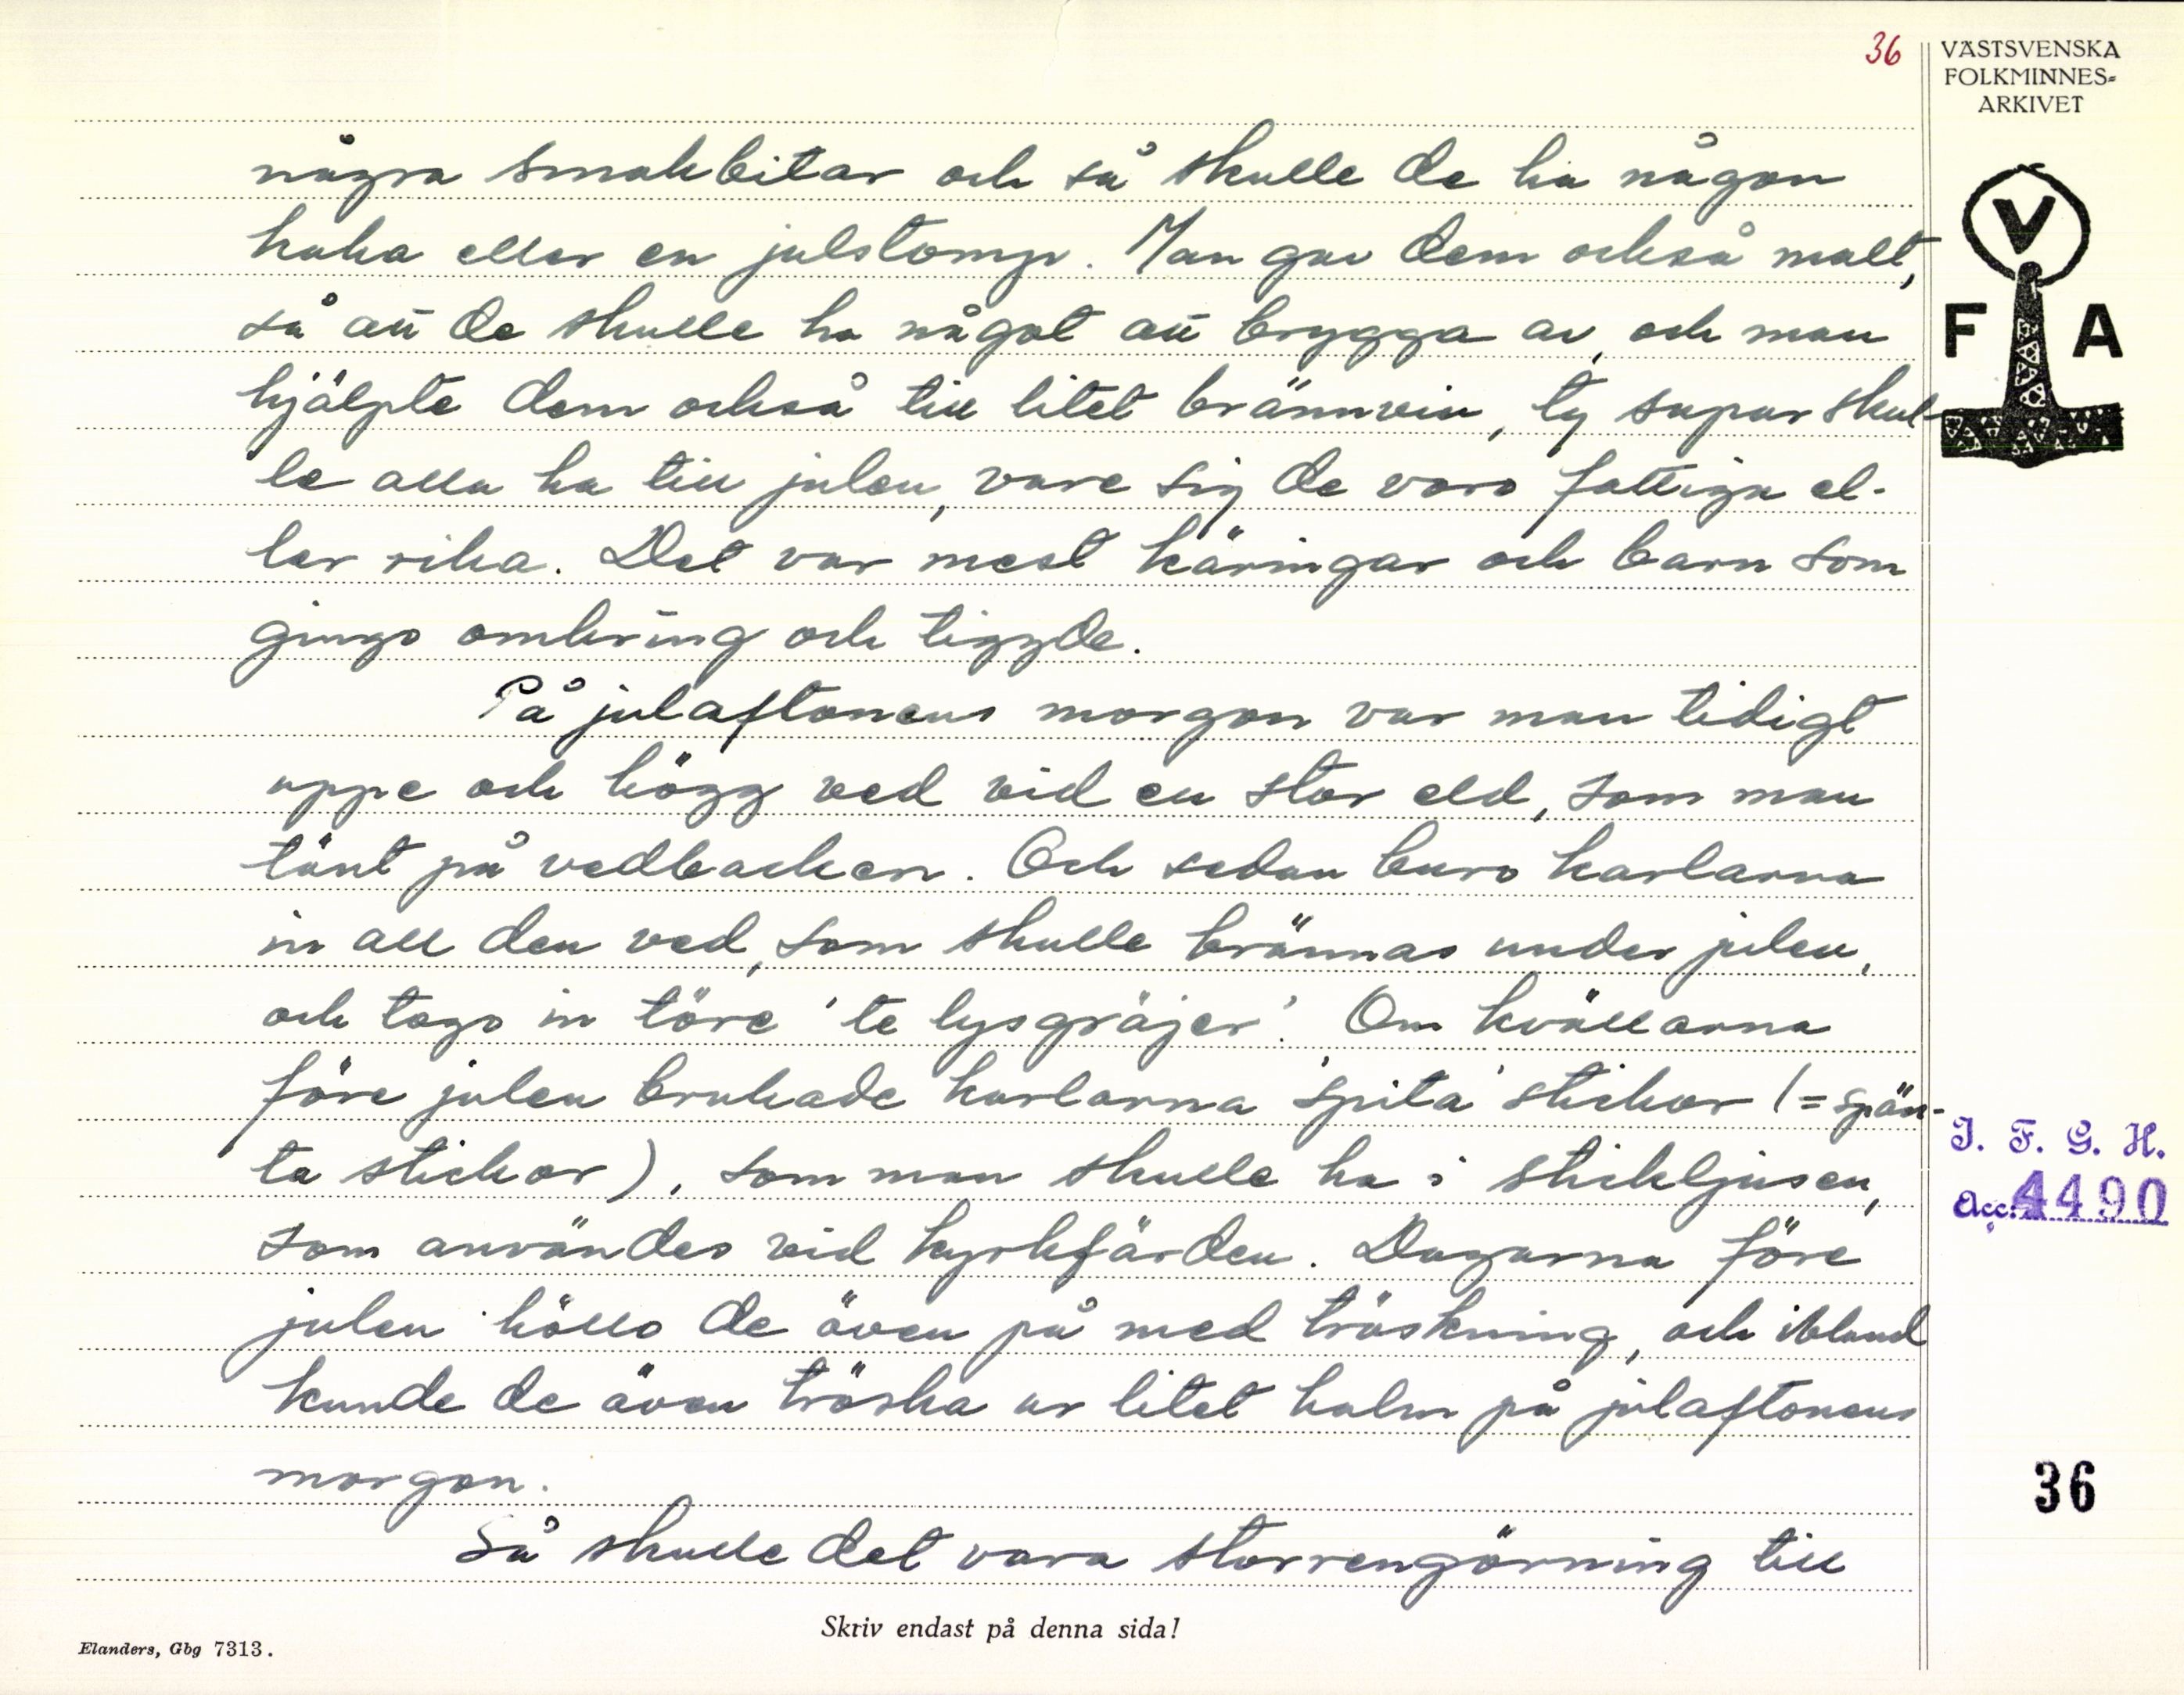 36
VÄSTSVENSKA
FOLKMINNES=
ARKIVET
V
F A
några smakbitar och så skulle de ha någon
kaka eller en julstomp. Man gav dem också malt,
så att de skulle ha något att brygga av, och man
hjälpte dem också till litet brännvin, ty supar skul-
le alla ha till julen, vare sig de voro fattiga el-
ler rika. Det var mest käringar och barn som
gingo omkring och tiggde.
På julaftonens morgon var man tidigt
uppe och högg ved vid en stor eld, som man
tänt på vedbacken. Och sedan buro karlarna
in all den ved, som skulle brännas under julen,
och togo in töre 'te lysgräjer'. Om kvällarna
före julen brukade karlarna 'spita' stickor (= spän-
ta stickor), som man skulle ha i stickljusen,
som användes vid kyrkfärden. Dagarna före
julen höllo de även på med tröskning, och ibland
kunde de även tröska ur litet halm på julaftonens
morgon.
Så skulle det vara storrengörning till
I. F. G. H.
Acc. 4490
36
Skriv endast på denna sida!
Elanders, Gbg 7313.